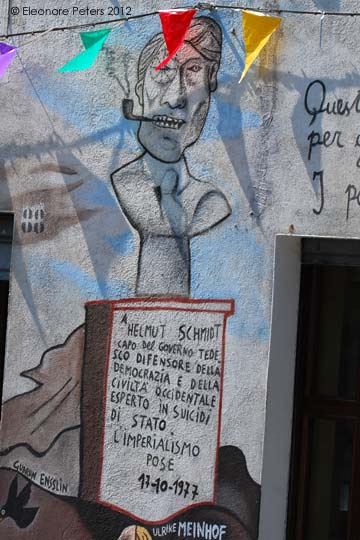 © Eleonore Peters 2012
Quest
per
I po
88
A
HELMUT SCHMIDT
CAPO DEL GOVERNO TEDE
SCO DIFENSORE DELLA
DEMOCRAZIA E DELLA
CIVILTÀ OCCIDENTALE
ESPERTO IN SUICIDI
DI STATO.
L'IMPERIALISMO
POSE
17-10-1977
GUDRUN ENSSLIN
ULRIKE MEINHOF